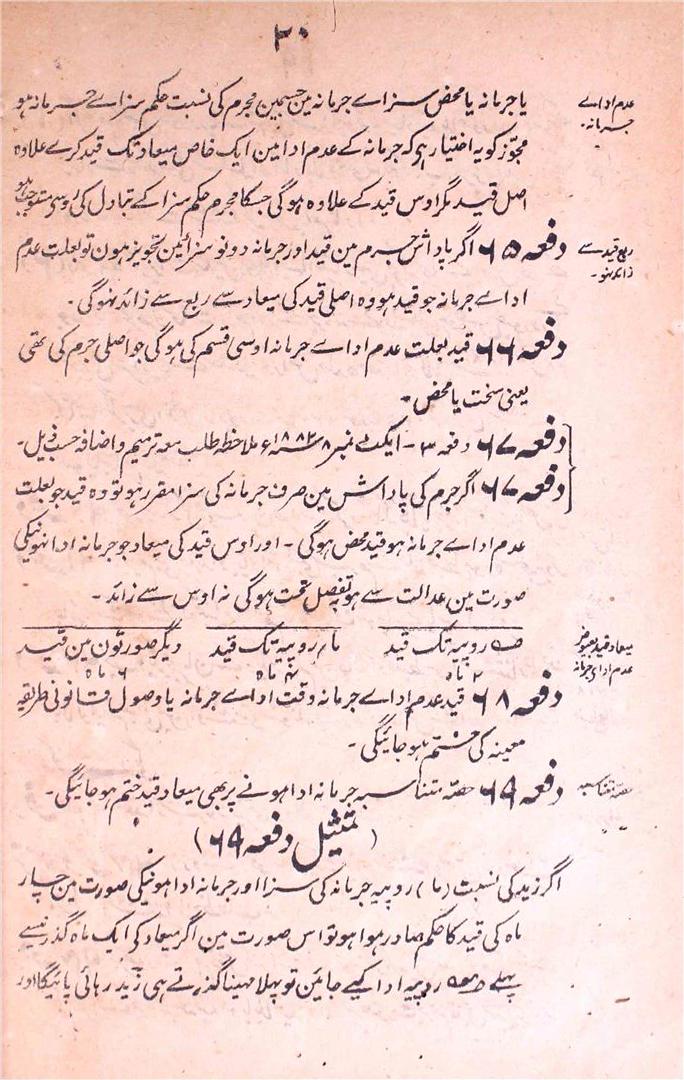 ۲۰
یا جرمانہ یا محض سزاے جرمانہ مین جسمین مجرم کی نسبت حکم سزاے جرمانہ ہو
عدم اداے
جرمانہ۔
مجوز کو یہ اختیار ہی کہ جرمانہ کے عدم ادا مین ایک خاص میعاد تک قید کرے علاوہ
اصل قید مگر اوس قید کے علاوہ ہوگی جسکا مجرم حکم سزا کے تبادل کی روسی مستوجب ہو
دفعہ ۶۵ اگر پاداش جرم مین قید اور جرمانہ دونو سزائین تجویز ہون تو بعلت عدم
ربع قید سے
زائد نہو۔
اداے جرمانہ جو قید ہو وہ اصلی قید کی میعاد سے ربع سے زائد نہوگی۔
دفعہ ۶۶ قید بعلت عدم اداے جرمانہ اوسی قسم کی ہوگی جو اصلی جرم کی تھی
یعنی سخت یا محض۔
دفعہ ۶۷ دفعہ ۳۔ ایکٹ نمبر ۸ ۱۸۸۲ء ملاحظہ طلب معہ ترمیم و اضافہ حسب ذیل۔
دفعہ ۶۷ اگر جرم کی پاداش مین صرف جرمانہ کی سزا مقرر ہو تو وہ قید جو بعلت
عدم اداے جرمانہ ہو قید محض ہوگی۔ اور اوس قید کی میعاد جو جرمانہ ادا نہونیکی
صورت مین عدالت سے ہو بتفصیل تحت ہوگی نہ اوس سے زائد۔
میعاد قید بعیوض
عدم ادای جرمانہ
روپیہ تک قید روپیہ تک قید دیگر صورتون مین قید
۲ ماہ ۴ ماہ ۶ ماہ
دفعہ ۶۸ قید عدم اداے جرمانہ وقت اداے جرمانہ یا وصول قانونی طریقہ
معینہ کی ختم ہوجائیگی۔
دفعہ ۶۹ حصہ متناسبہ جرمانہ ادا ہونے پر بھی میعاد قید ختم ہوجائیگی۔
حصہ متناسبہ
(تمثیل دفعہ ۶۹)
اگر زید کی نسبت (ما) روپیہ جرمانہ کی سزا اور جرمانہ ادا ہونیکی صورت مین چار
ماہ کی قید کا حکم صادر ہوا ہو تو اس صورت مین اگر میعاد کی ایک ماہ گذرنیسے
پہلے روپیہ ادا کیے جائین تو پہلا مہینا گذرتے ہی زید رہائی پائیگا اور